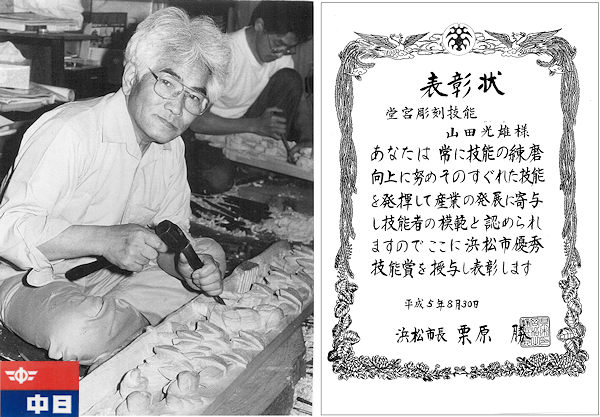 中日
表彰状
堂宮彫刻技能
山田光雄様
あなたは常に技能の練磨
向上に努めそのすぐれた技能
を発揮して産業の発展に寄与
し技能者の模範と認められ
ますのでここに浜松市優秀
技能賞を授与し表彰します
平成5年8月30日
浜松市長 栗原 勝